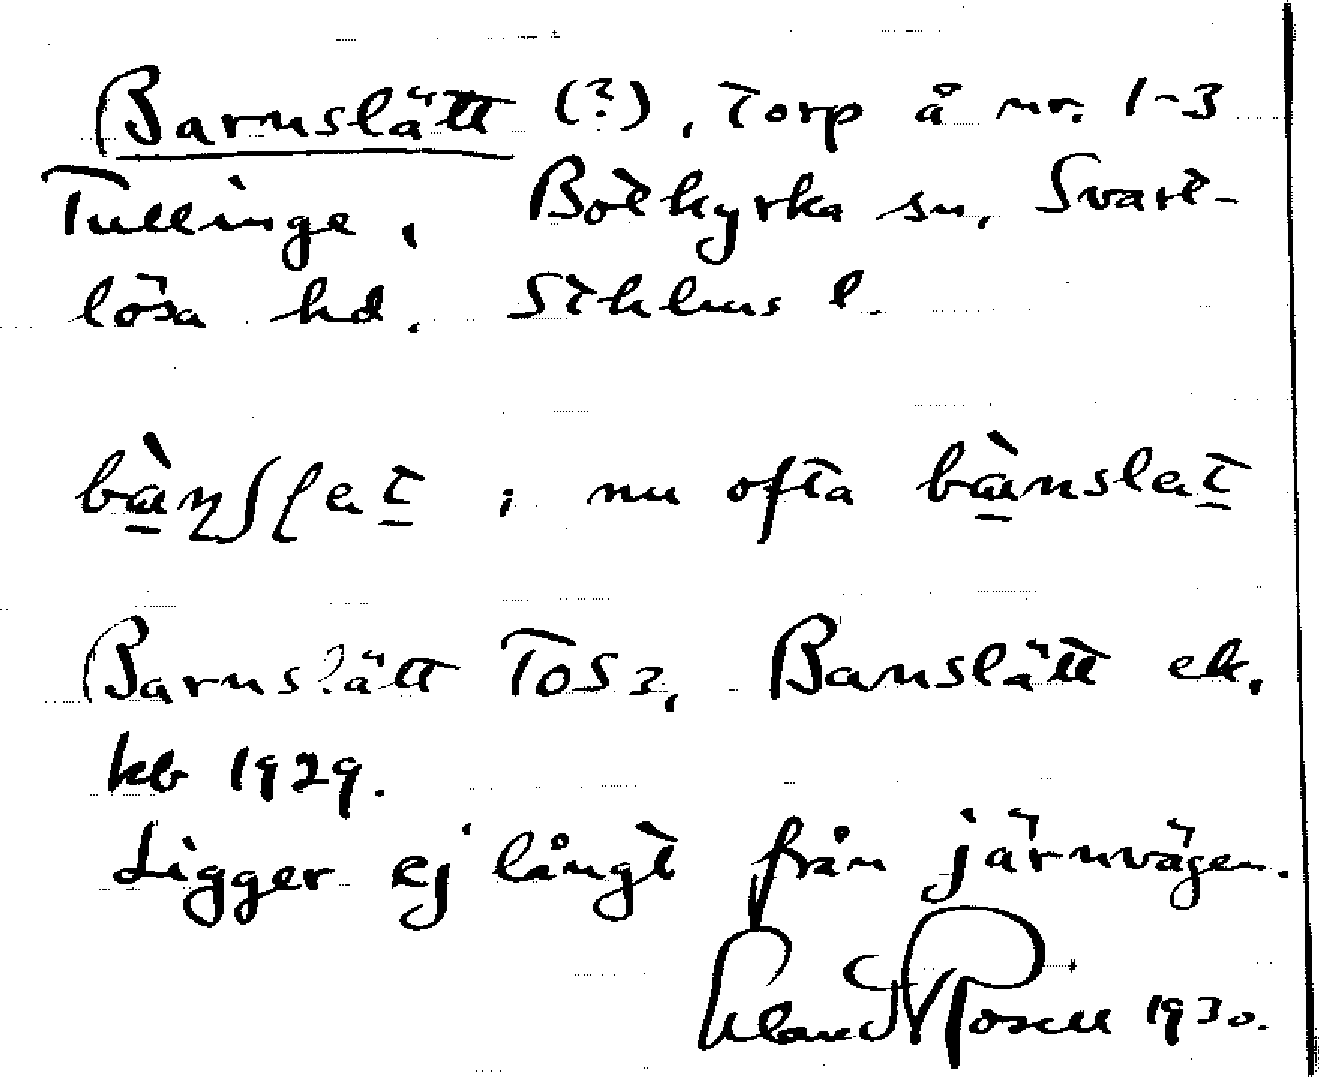 Barnslätt (?), Torp å nr. 1-3
Tullinge, Botkyrka sn, Svart-
lösa hd. Sthlms l.
; nu ofta bànslat
Barnslätt TOS 2, Banslätt ek.
kb 1929.
Ligger ej långt från järnvägen.
1930.